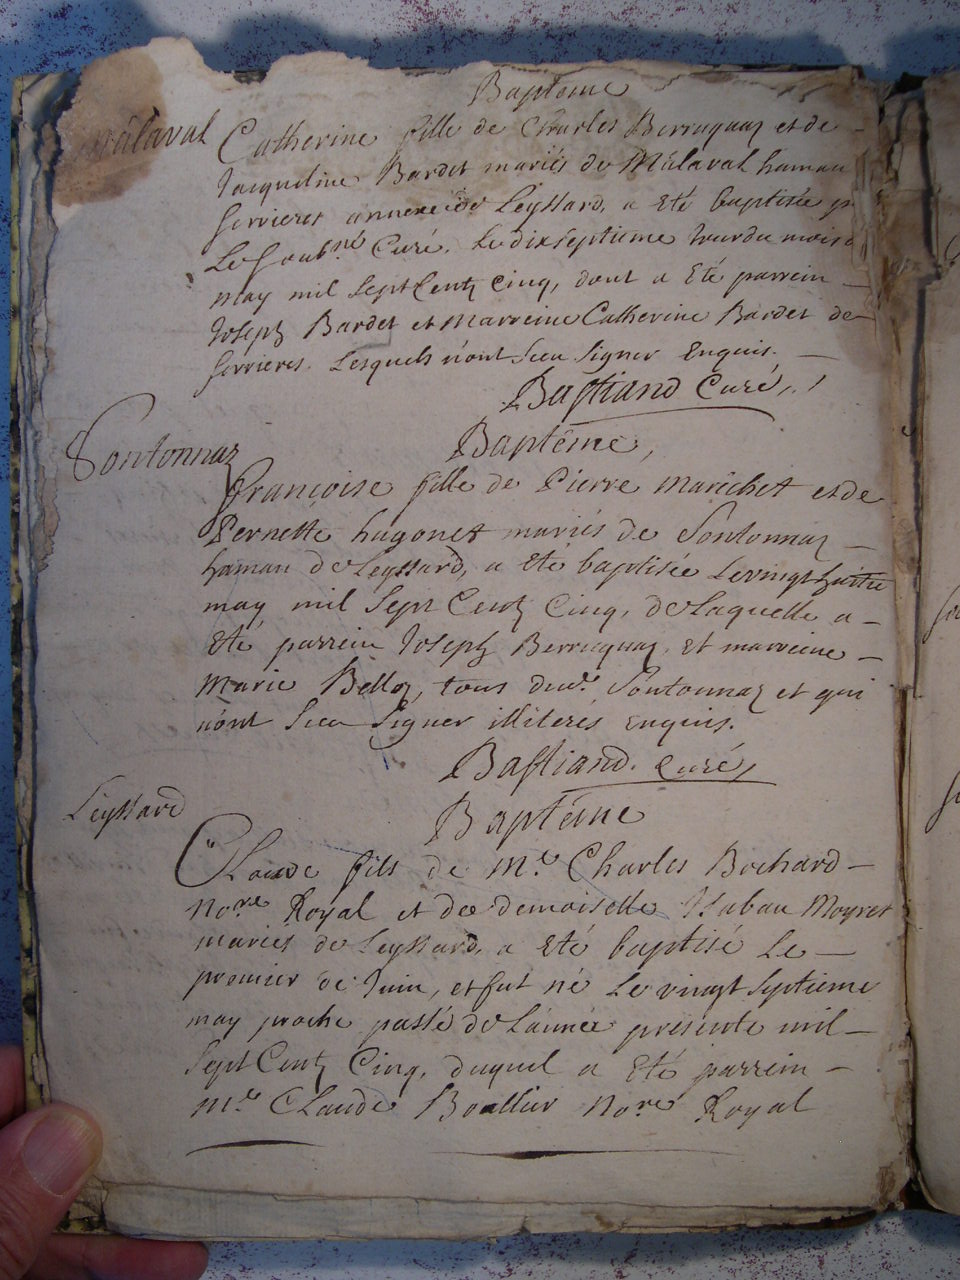 Baptême
Mâlaval
Catherine fille de Charles Berruquaz et de
Jacqueline Bardet mariés de Mâlaval hamau
Serrieres annexe de Leyssard, a été baptisée p
Le Soub.né Curé, Le dixseptieme Jour du mois d
may mil Sept Centz Cinq, dont a été parrein
Joseph Bardet et Marreine Catherine Bardet de
Serrieres. Lesquels n'ont Sceu Signer Enquis.
Bastiand Curé,
Sontonnaz
Baptême,
françoise fille de Pierre Maréchet et de
Pernette hugonet mariés de Sontonnaz
hamau de Leyssard, a été baptisée Le vingt huitie
may mil Sept Centz Cinq, de Laquelle a
été parrein Joseph Berruquaz, et marreine
Marie Belloz, tous dud.t Sontonnaz et qui
n'ont Sceu Signer illiterés enquis.
Bastiand. Curé,
Leyssard
Baptême
Claude fils de M.e Charles Bochard
No.re Royal et de demoiselle Isabau Moyret
mariés de Leyssard, a été baptisé Le
premier de Juin, et fut né Le vingt Septieme
may proche passé de L'année présente mil
Sept Centz Cinq, duquel a été parrein
M.e Claude Boallier No.re Royal